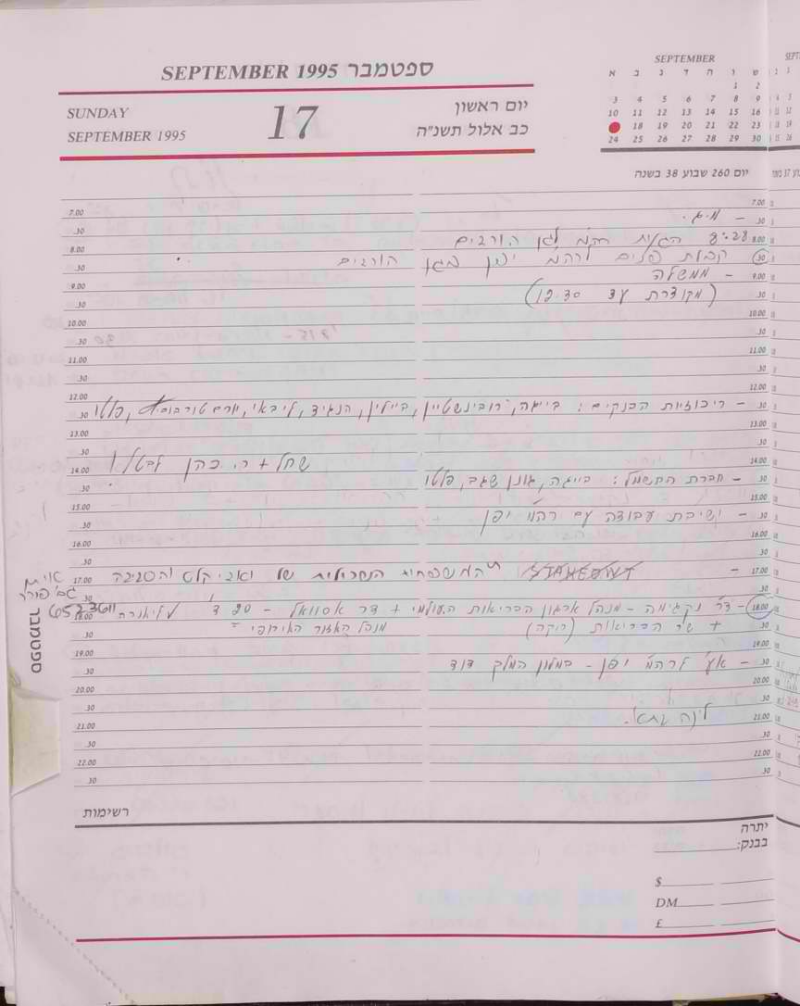 ספטמבר SEPTEMBER 1995
SUNDAY
SEPTEMBER 1995
17
יום ראשון
כב אלול תשנ"ה
SEPTEMBER
א ב ג ד ה ו ש
1 2
3 4 5 6 7 8 9
10 11 12 13 14 15 16
18 19 20 21 22 23
24 25 26 27 28 29 30
יום 260 שבוע 38 בשנה
7.00
.30 -
8.00 8:25 הגעת רהמ לגן הורדים
.30 קבלת פנים לרהמ יפן בגן הורדים
9.00 - ממשלה
.30 (מקוצרת עד 12.30)
10.00
.30
11.00
.30
12.00
.30 - ריכוזיות הבנקים: בייגה, רובינשטיין, ביילין, הנגיד, ליבאי, יורם טורבוביץ, פלטו
13.00
.30
14.00 שחל + ר. כהן
.30 - חברת החשמל: בייגה, גונן שגב, פלטו
15.00
.30 - ישיבת עבודה עם רהמ יפן
16.00
.30
17.00 - המשפחות השכולות של
.30
18.00 - דר נקג'ימה - מנהל ארגון הבריאות העולמי + דר אסוואל - 20 ד'
.30 + שר הבריאות מנהל האזור האירופי
19.00
.30 - אע' לרהמ יפן - במלון המלך דוד
20.00
.30
21.00 לינה
.30
22.00
.30
ספטמבר
רשימות
יתרה
בבנק:
$
DM
£